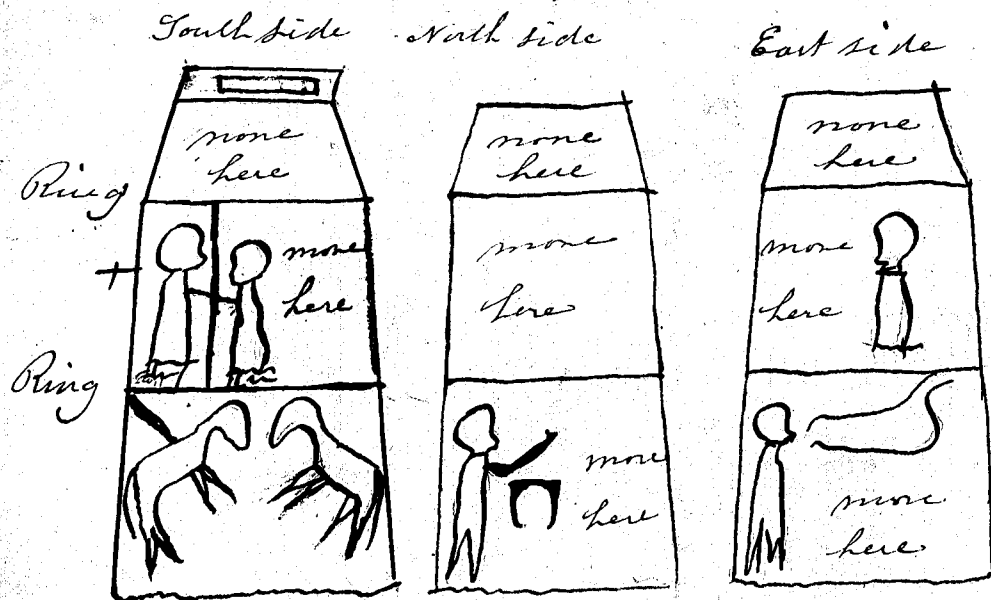 South side
North side
East side
none
here
none
here
none
here
Ring
more
here
more
here
more
here
Ring
more
here
more
here